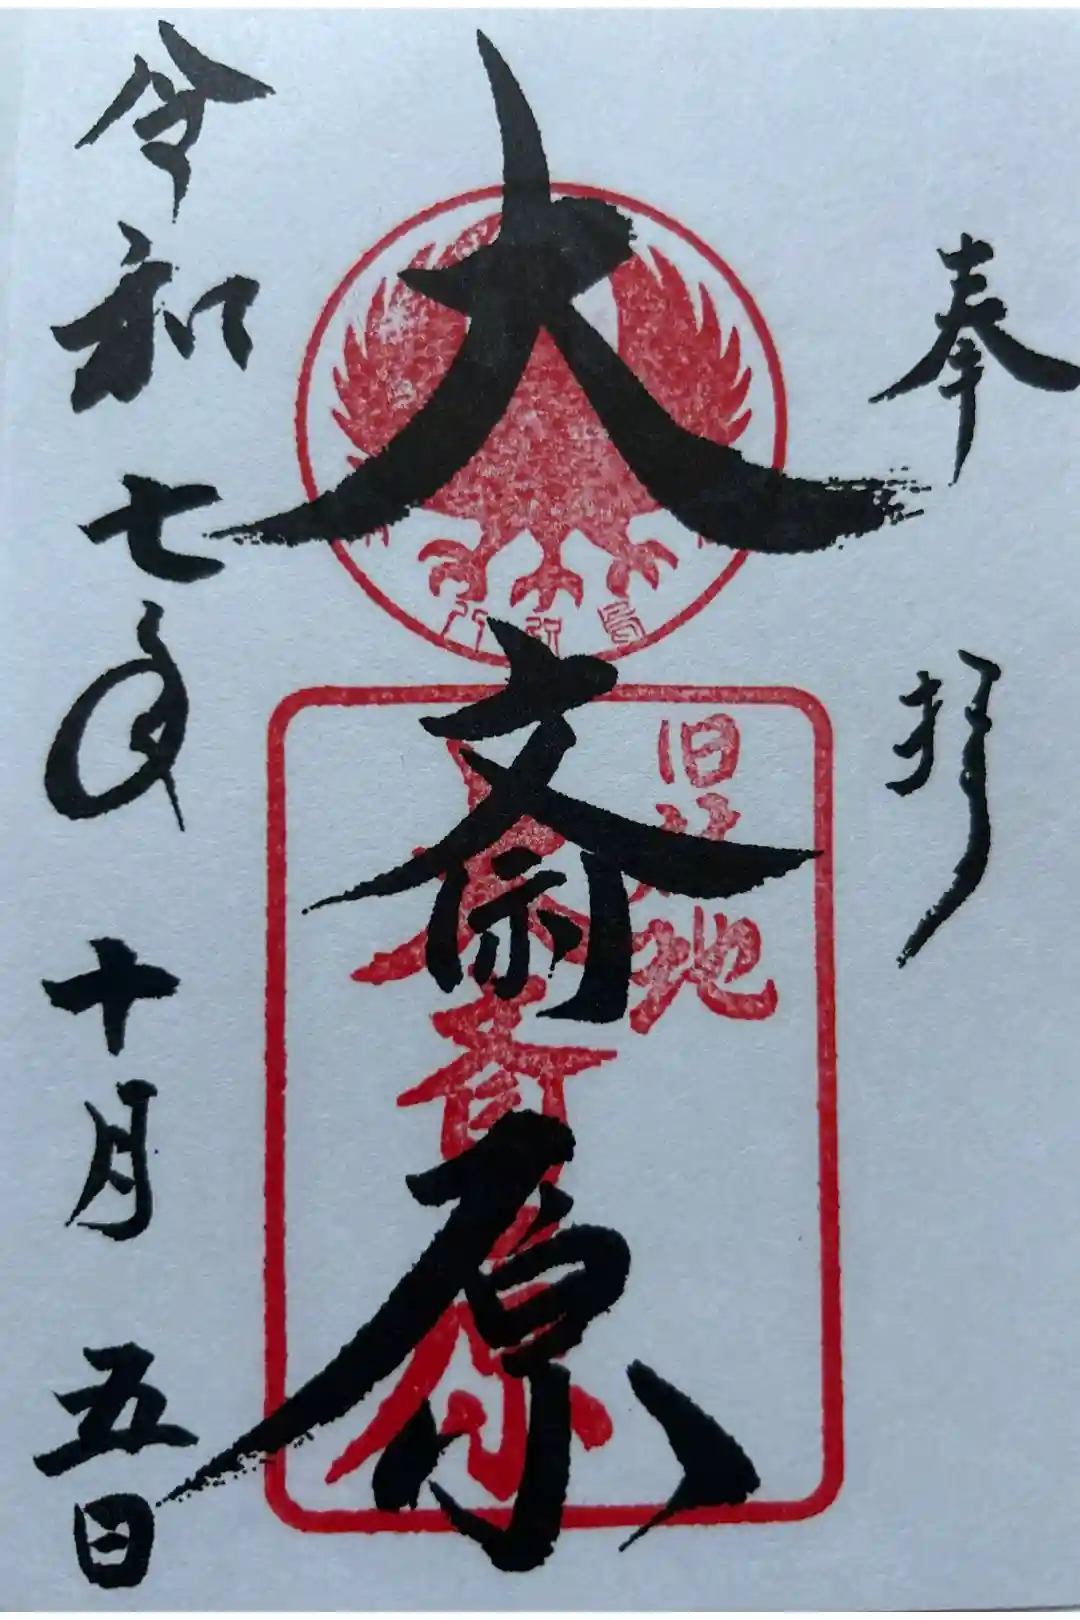 奉拝
大斎原
旧社地
大斎原
令和七年十月五日